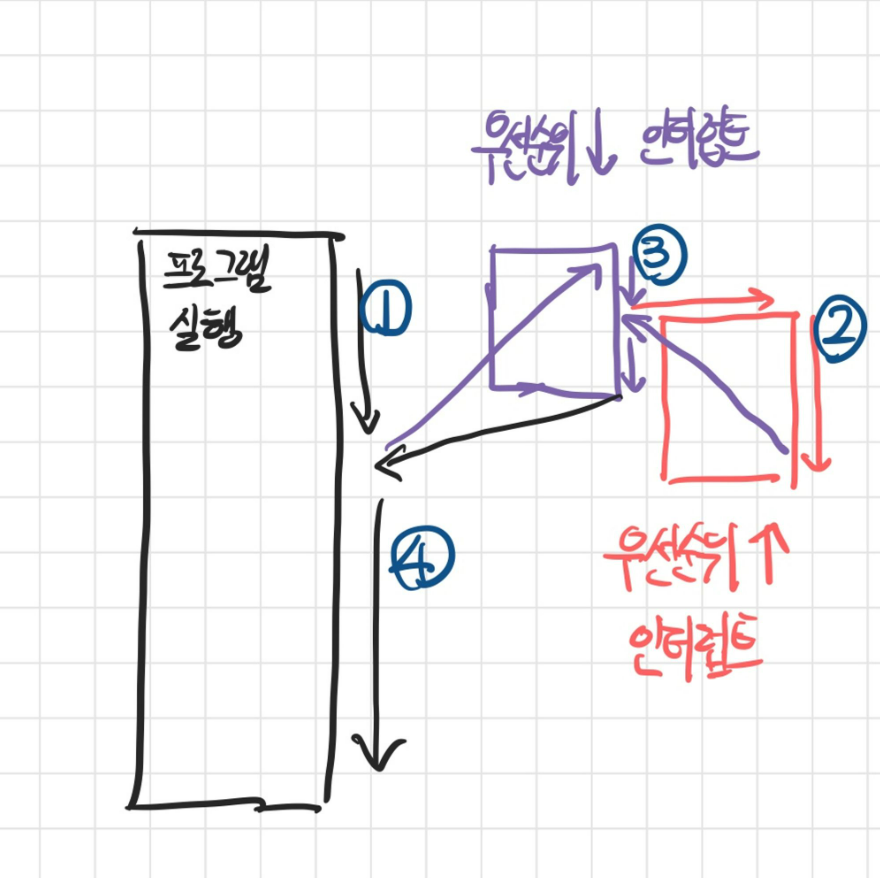 우선순위↓ 인터럽트
프로그램
실행
①
③
②
④
우선순위↑
인터럽트